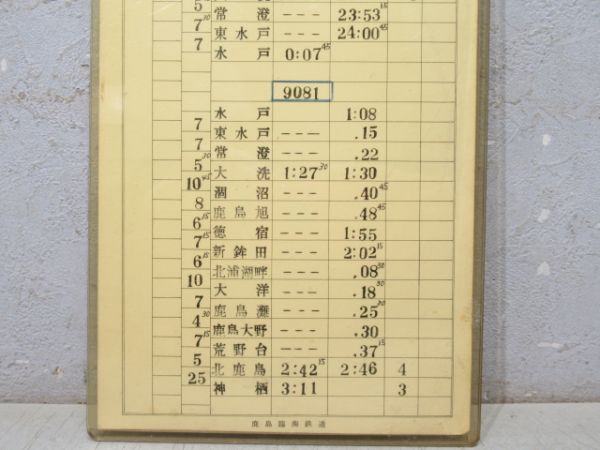 5 常 澄 --- 23:53 15
7 30 東水戸 --- 24:00 45
7 水 戸 0:07 45
9081
水 戸 1:08
7 東水戸 --- .15
7 常 澄 --- .22
5 30 大 洗 1:27 30 1:30
10 45 涸 沼 --- .40 45
8 鹿島旭 --- .48 45
6 15 徳 宿 --- 1:55
7 15 新鉾田 --- 2:02 15
6 15 北浦湖畔 --- .08 30
10 大 洋 --- .18 30
7 鹿島灘 --- .25 30
4 30 鹿島大野 --- .30
7 15 荒野台 --- .37 15
5 北鹿島 2:42 15 2:46 4
25 神 栖 3:11 3
鹿島臨海鉄道